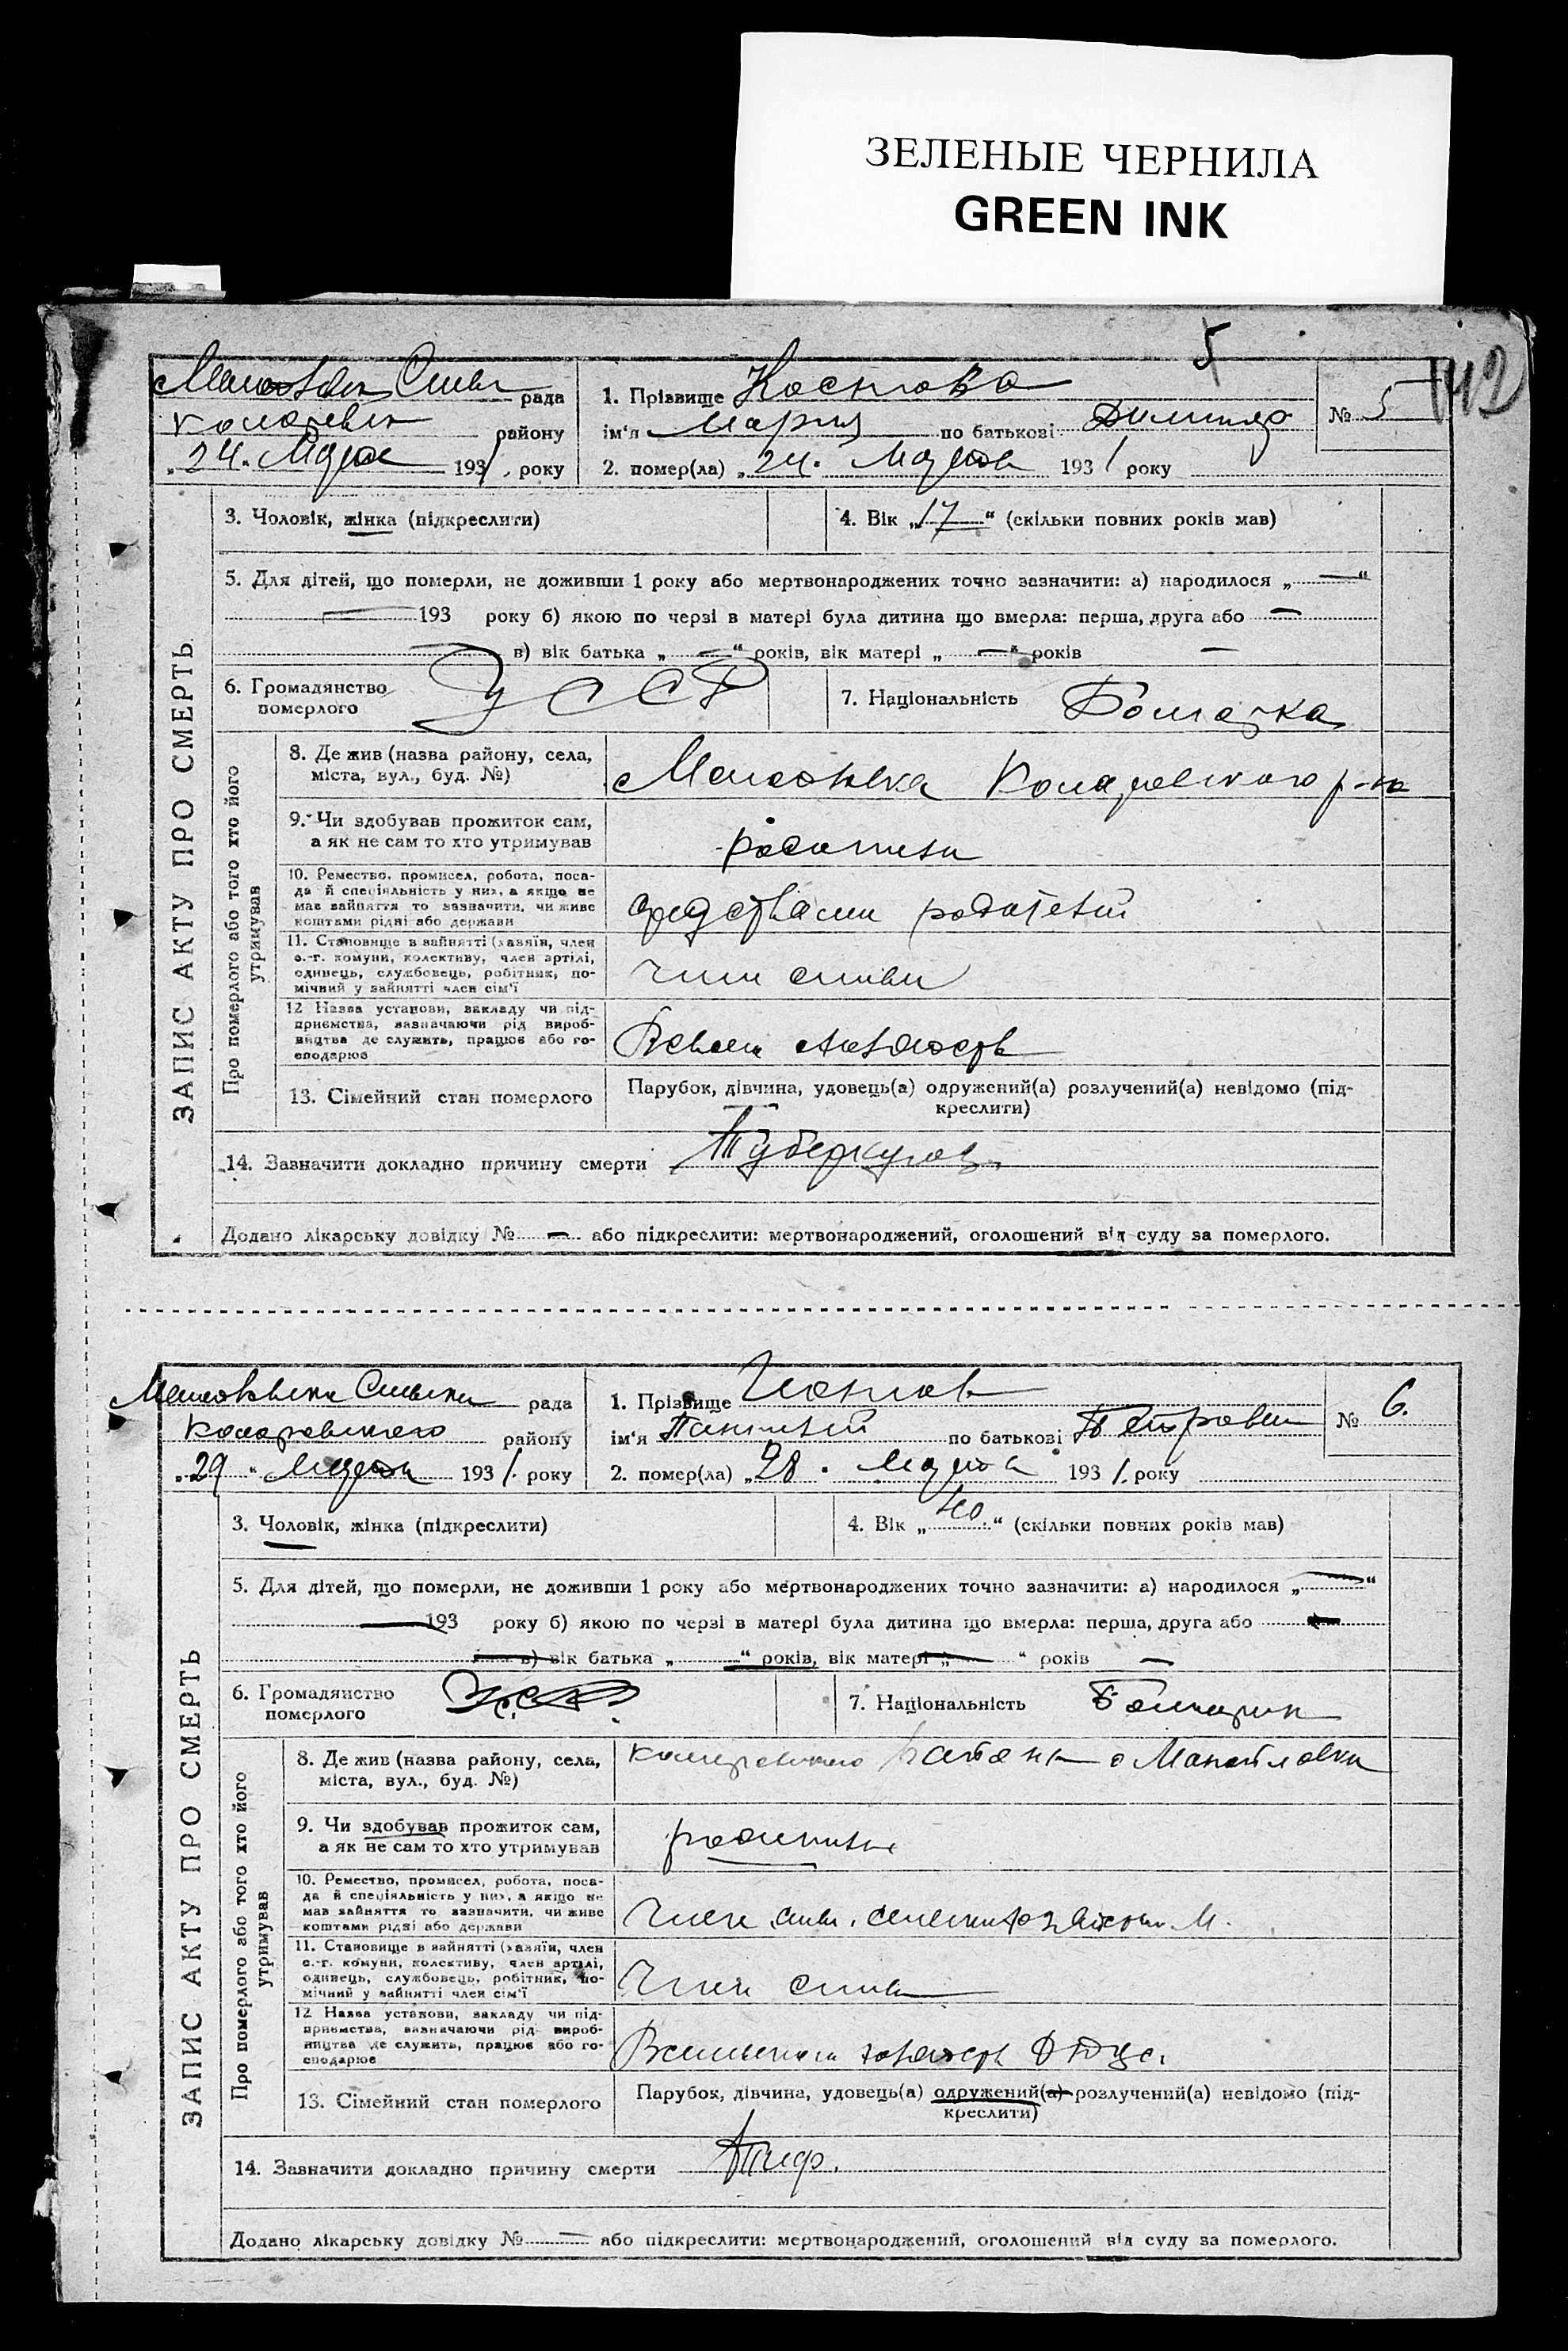 ЗЕЛЕНЫЕ ЧЕРНИЛА
GREEN INK
5
42
рада
района району
24. Марта 1931. року
1. Прізвище Костова
ім'я Мария по батькові
2. помер(ла) „24. Марта 1931 року
№ 5
ЗАПИС АКТУ ПРО СМЕРТЬ
3. Чоловік, жінка (підкреслити)
4. Вік „17“ (скільки повних років мав)
5. Для дітей, що померли, не доживши 1 року або мертвонароджених точно зазначити: а) народилося „—“
— 193 року б) якою по черзі в матері була дитина що вмерла: перша, друга або —
— в) вік батька „—“ років, вік матері „—“ років —
6. Громадянство
померлого
УССР
7. Національність Болгарка
Про померлого або того хто його
утримував
8. Де жив (назва району, села,
міста, вул., буд. №)
Коларовского р-на
9. Чи здобував прожиток сам,
а як не сам то хто утримував
родители
10. Ремество, промисел, робота, поса-
да й спеціяльність у них, а якщо не
мав зайняття то зазначити, чи живе
коштами рідні або держави
средствами родителей
11. Становище в зайнятті (хазяїн, член
с.-г. комуни, колективу, член артілі,
одинець, службовець, робітник, по-
мічний у зайнятті член сім'ї
член семьи
12 Назва установи, закладу чи під-
приємства, зазначаючи рід вироб-
ництва де служить, працює або го-
сподарює
13. Сімейний стан померлого
Парубок, дівчина, удовець(а) одружений(а) розлучений(а) невідомо (під-
креслити)
14. Зазначити докладно причину смерти Туберкулоз.
Додано лікарську довідку № — або підкреслити: мертвонароджений, оголошений від суду за померлого.
рада
Коларовского району
„29“ Марта 1931. року
1. Прізвище
ім'я Пантелей по батькові Петрович
2. помер(ла) „28. Марта 1931. року
№ 6.
ЗАПИС АКТУ ПРО СМЕРТЬ
3. Чоловік, жінка (підкреслити)
4. Вік „40“ (скільки повних років мав)
5. Для дітей, що померли, не доживши 1 року або мертвонароджених точно зазначити: а) народилося „—“
— 193 року б) якою по черзі в матері була дитина що вмерла: перша, друга або —
в) вік батька „—“ років, вік матері „—“ років —
6. Громадянство
померлого
7. Національність Болгарин
Про померлого або того хто його
утримував
8. Де жив (назва району, села,
міста, вул., буд. №)
Коларовского
9. Чи здобував прожиток сам,
а як не сам то хто утримував
родители
10. Ремество, промисел, робота, поса-
да й спеціяльність у них, а якщо не
мав зайняття то зазначити, чи живе
коштами рідні або держави
11. Становище в зайнятті (хазяїн, член
с.-г. комуни, колективу, член артілі,
одинець, службовець, робітник, по-
мічний у зайнятті член сім'ї
член семьи
12 Назва установи, закладу чи під-
приємства, зазначаючи рід вироб-
ництва де служить, працює або го-
сподарює
13. Сімейний стан померлого
Парубок, дівчина, удовець(а) одружений(а) розлучений(а) невідомо (під-
креслити)
14. Зазначити докладно причину смерти Тиф.
Додано лікарську довідку № — або підкреслити: мертвонароджений, оголошений від суду за померлого.